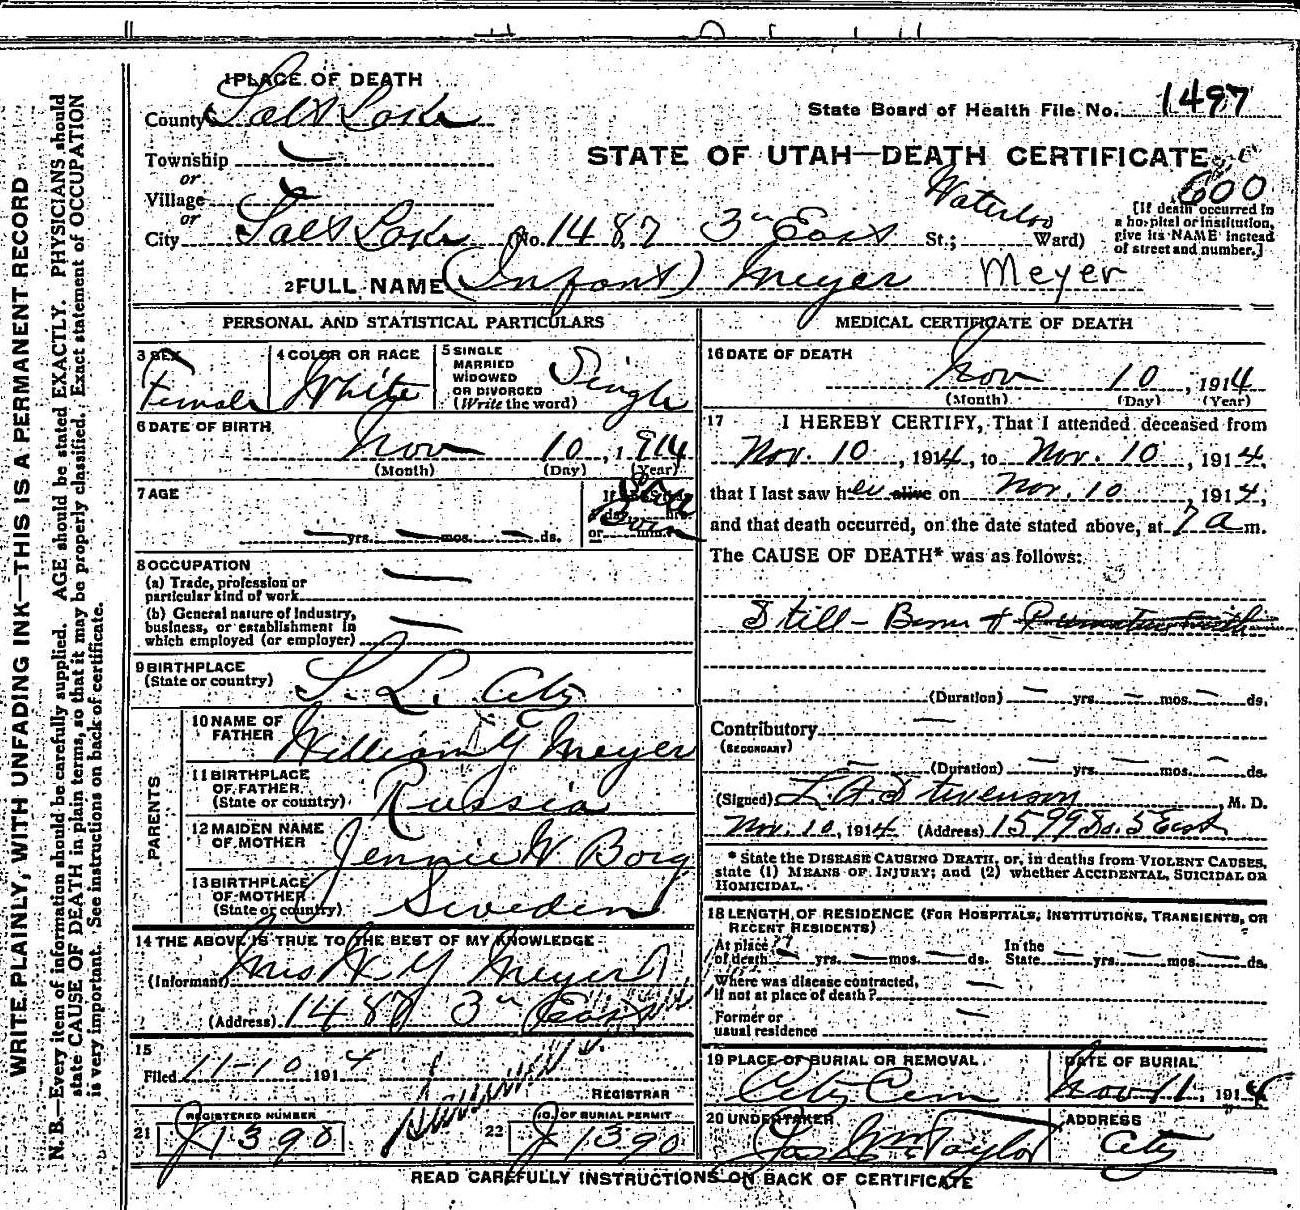 1 PLACE OF DEATH
County Salt Lake
State Board of Health File No. 1497
Township
or
Village
or
STATE OF UTAH—DEATH CERTIFICATE
600
City Salt Lake (No. 1487 3rd East St.; Waterloo Ward)
[If death occurred in
a hospital or institution,
give its NAME instead
of street and number.]
2 FULL NAME (Infant) Meyer Meyer
PERSONAL AND STATISTICAL PARTICULARS
3 SEX
Female
4 COLOR OR RACE
White
5 SINGLE
MARRIED
WIDOWED
OR DIVORCED
(Write the word)
Single
6 DATE OF BIRTH
Nov 10, 1914
(Month) (Day) (Year)
7 AGE
yrs. mos. ds.
8 OCCUPATION
(a) Trade, profession or
particular kind of work
(b) General nature of Industry,
business, or establishment in
which employed (or employer)
9 BIRTHPLACE
(State or country)
S. L. City
PARENTS
10 NAME OF
FATHER
William Y Meyer
11 BIRTHPLACE
OF FATHER
(State or country)
Russia
12 MAIDEN NAME
OF MOTHER
Jennie W Borg
13 BIRTHPLACE
OF MOTHER
(State or country)
Sweden
14 THE ABOVE IS TRUE TO THE BEST OF MY KNOWLEDGE
(Informant) Mrs W Y Meyer
(Address) 1487 3rd East
15
Filed 11-10 1914
REGISTRAR
REGISTERED NUMBER
21 J1390
NO. OF BURIAL PERMIT
22 J1390
MEDICAL CERTIFICATE OF DEATH
16 DATE OF DEATH
Nov 10, 1914
(Month) (Day) (Year)
17 I HEREBY CERTIFY, That I attended deceased from
Nov. 10, 1914, to Nov. 10, 1914,
that I last saw her alive on Nov. 10, 1914,
and that death occurred, on the date stated above, at 7 a m.
The CAUSE OF DEATH* was as follows:
Still-Born & Premature birth
(Duration) yrs. mos. ds.
Contributory
(SECONDARY)
(Duration) yrs. mos. ds.
(Signed) L. A. Stevenson, M. D.
Nov. 10, 1914 (Address) 1599 So. 5 East
* State the DISEASE CAUSING DEATH, or, in deaths from VIOLENT CAUSES,
state (1) MEANS OF INJURY; and (2) whether ACCIDENTAL, SUICIDAL OR
HOMICIDAL.
18 LENGTH OF RESIDENCE (FOR HOSPITALS, INSTITUTIONS, TRANSIENTS, OR
RECENT RESIDENTS)
At place
of death yrs. mos. ds.
In the
State yrs. mos. ds.
Where was disease contracted,
if not at place of death?
Former or
usual residence
19 PLACE OF BURIAL OR REMOVAL
City Cem
DATE OF BURIAL
Nov 11, 1914
20 UNDERTAKER
Jos Wm Taylor
ADDRESS
City
READ CAREFULLY INSTRUCTIONS ON BACK OF CERTIFICATE
WRITE PLAINLY, WITH UNFADING INK—THIS IS A PERMANENT RECORD
N. B.—Every item of information should be carefully supplied. AGE should be stated EXACTLY. PHYSICIANS should
state CAUSE OF DEATH in plain terms, so that it may be properly classified. Exact statement of OCCUPATION
is very important. See instructions on back of certificate.